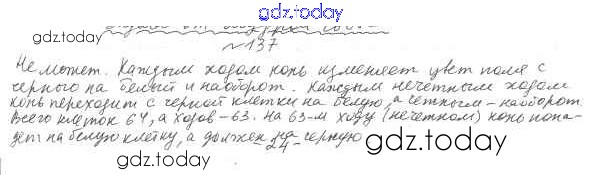 gdz.today
gdz.today
№137
Не может. Каждым ходом конь изменяет цвет поля с
черного на белый и наоборот. Каждым нечетным ходом
конь переходит с черной клетки на белую, а четным - наоборот.
Всего клеток 64, а ходов - 63. На 63-м ходу (нечетном) конь попа-
дет на белую клетку, а должен на черную
gdz.today
gdz.today
-24-